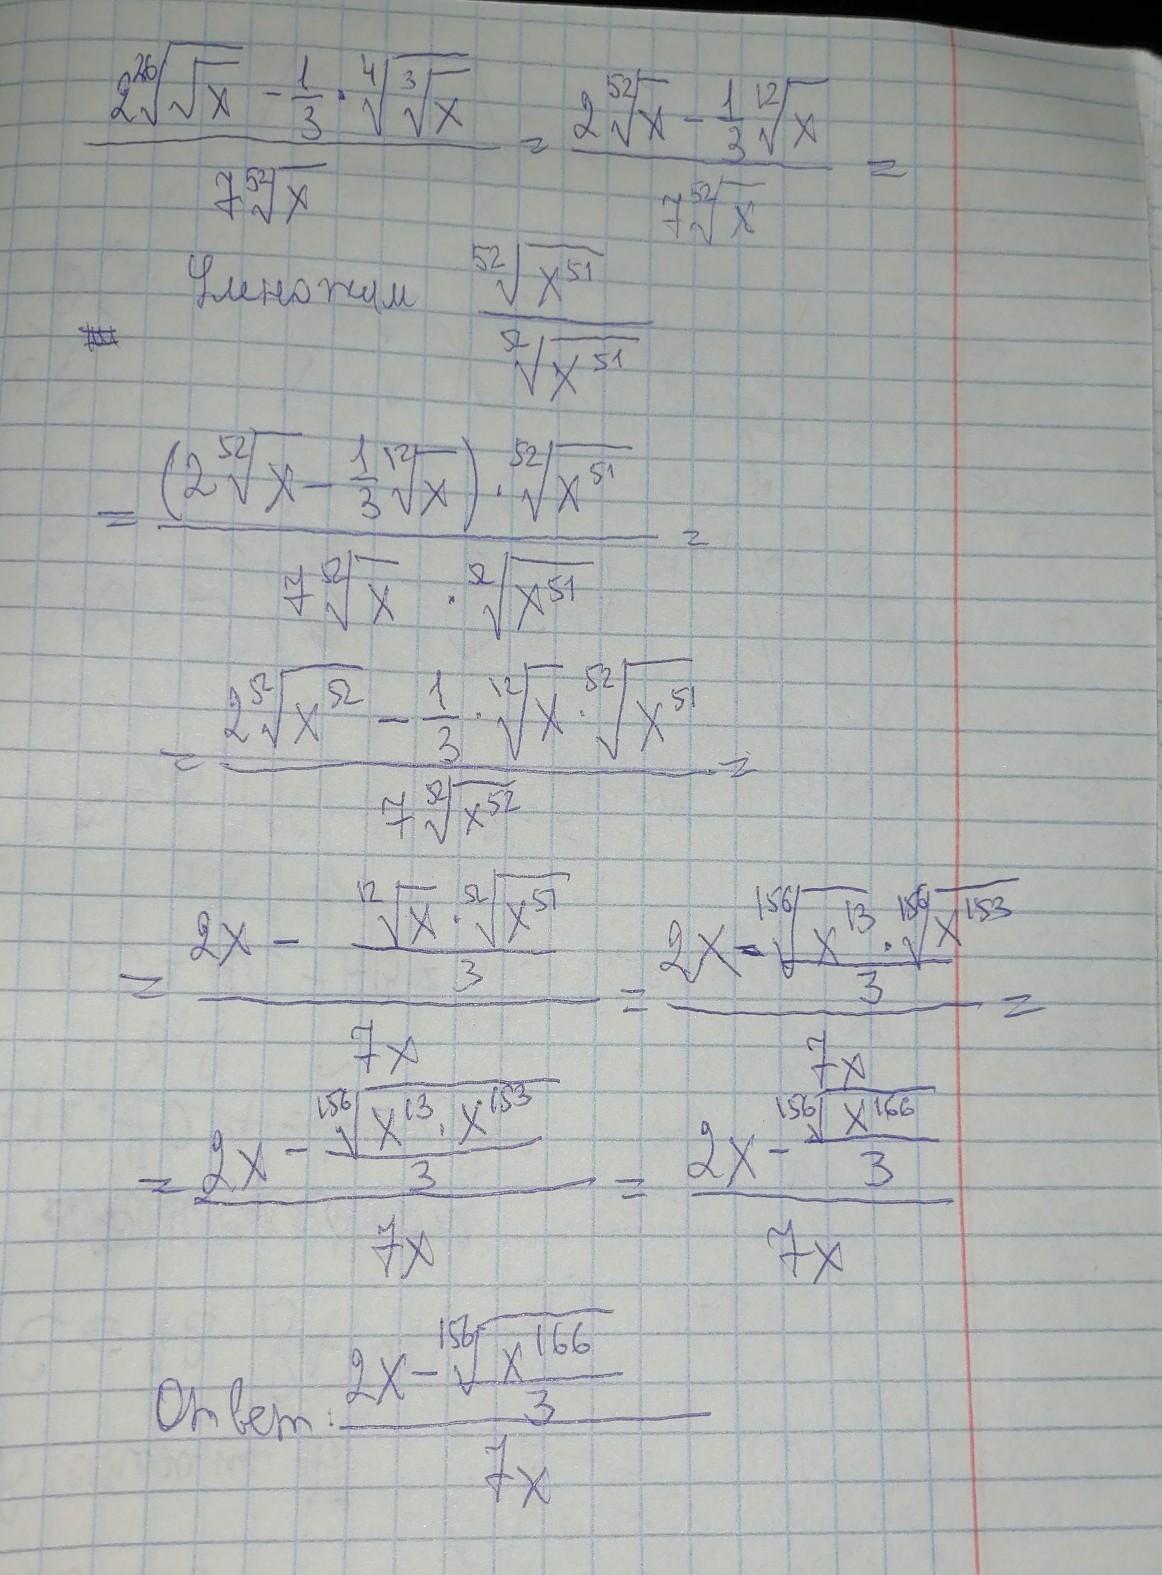 (2 ²⁶√(√x) − 1/3 · ⁴√(³√x)) / (7 ⁵²√x) = (2 ⁵²√x − 1/3 ¹²√x) / (7 ⁵²√x) =
Умножим ⁵²√(x⁵¹) / ⁵²√(x⁵¹)
= ((2 ⁵²√x − 1/3 ¹²√x) · ⁵²√(x⁵¹)) / (7 ⁵²√x · ⁵²√(x⁵¹)) =
= (2 ⁵²√(x⁵²) − 1/3 · ¹²√x · ⁵²√(x⁵¹)) / (7 ⁵²√(x⁵²)) =
= (2x − (¹²√x · ⁵²√(x⁵¹)) / 3) / (7x) = (2x − (¹⁵⁶√(x¹³) · ¹⁵⁶√(x¹⁵³)) / 3) / (7x) =
= (2x − ¹⁵⁶√(x¹³ · x¹⁵³) / 3) / (7x) = (2x − ¹⁵⁶√(x¹⁶⁶) / 3) / (7x)
Ответ: (2x − ¹⁵⁶√(x¹⁶⁶) / 3) / (7x)